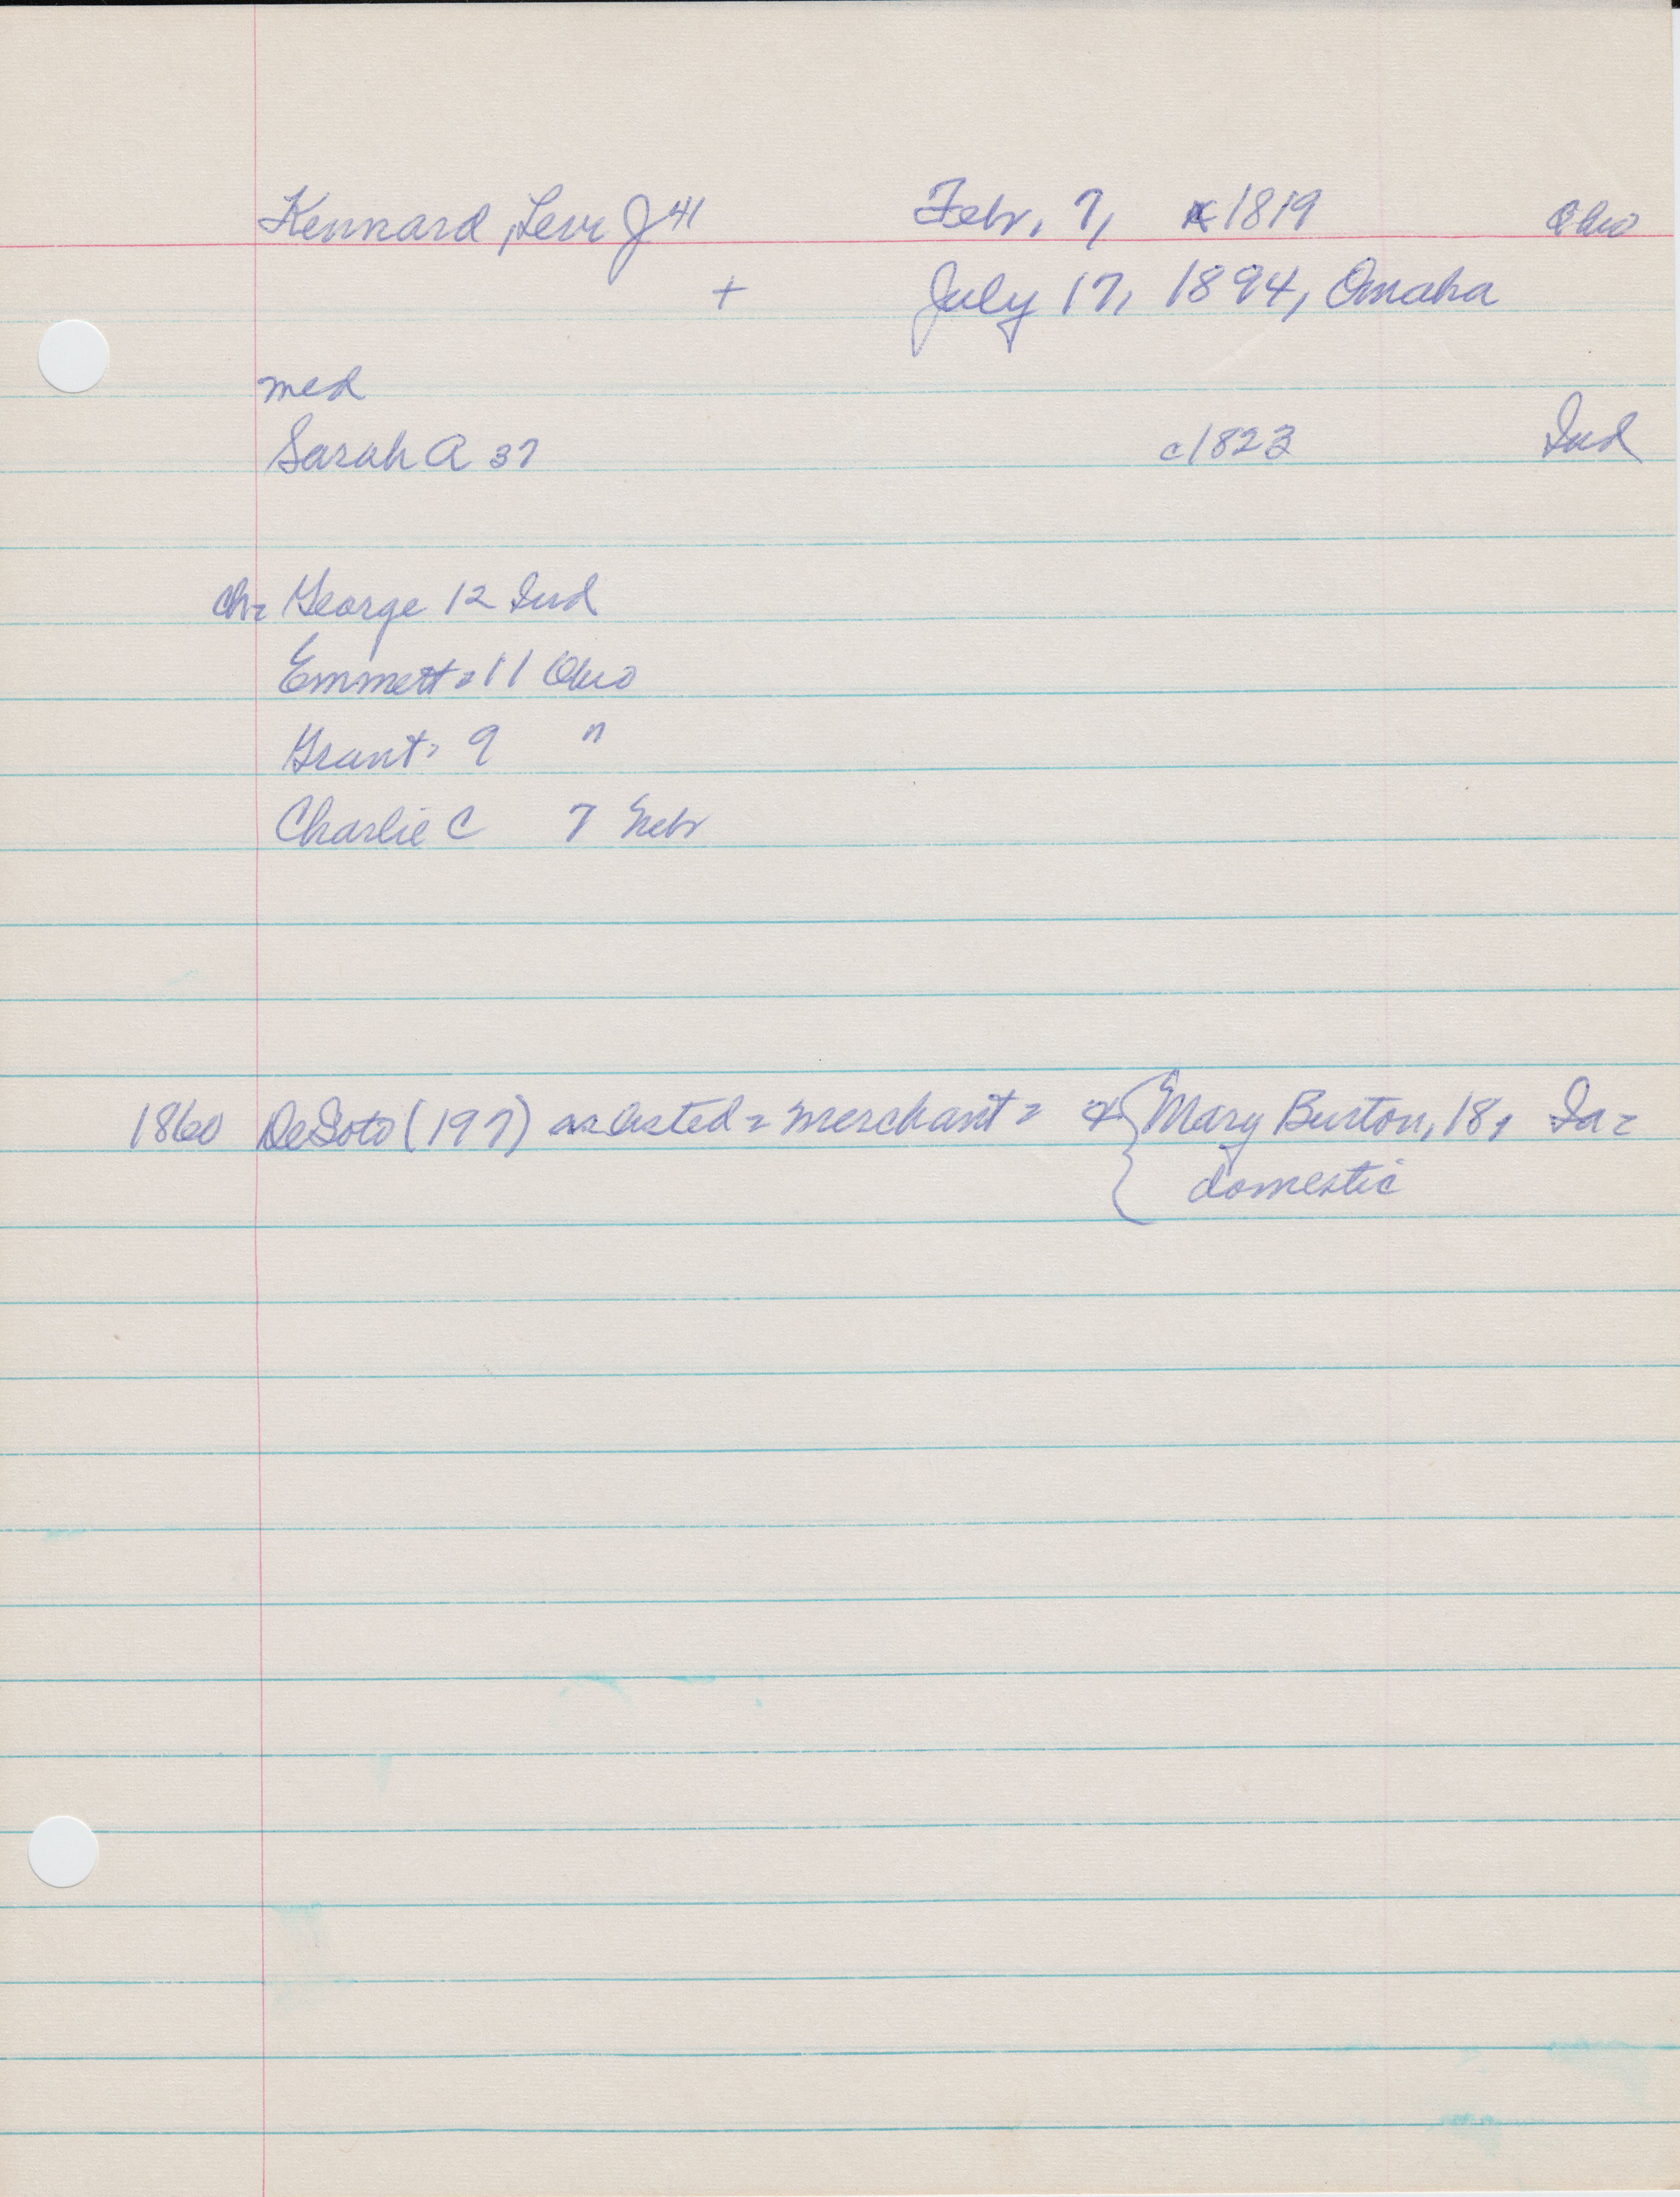 Kennard, Levi J 41 Febr. 7, 1819 Ohio
+ July 17, 1894, Omaha
med
Sarah A 37 c1823 Ind
ch= George 12 Ind
Emmett= 11 Ohio
Grant= 9 "
Charlie C 7 Nebr
1860 DeSoto (197) as listed = merchant = & { Mary Burton, 18, Ia =
domestic